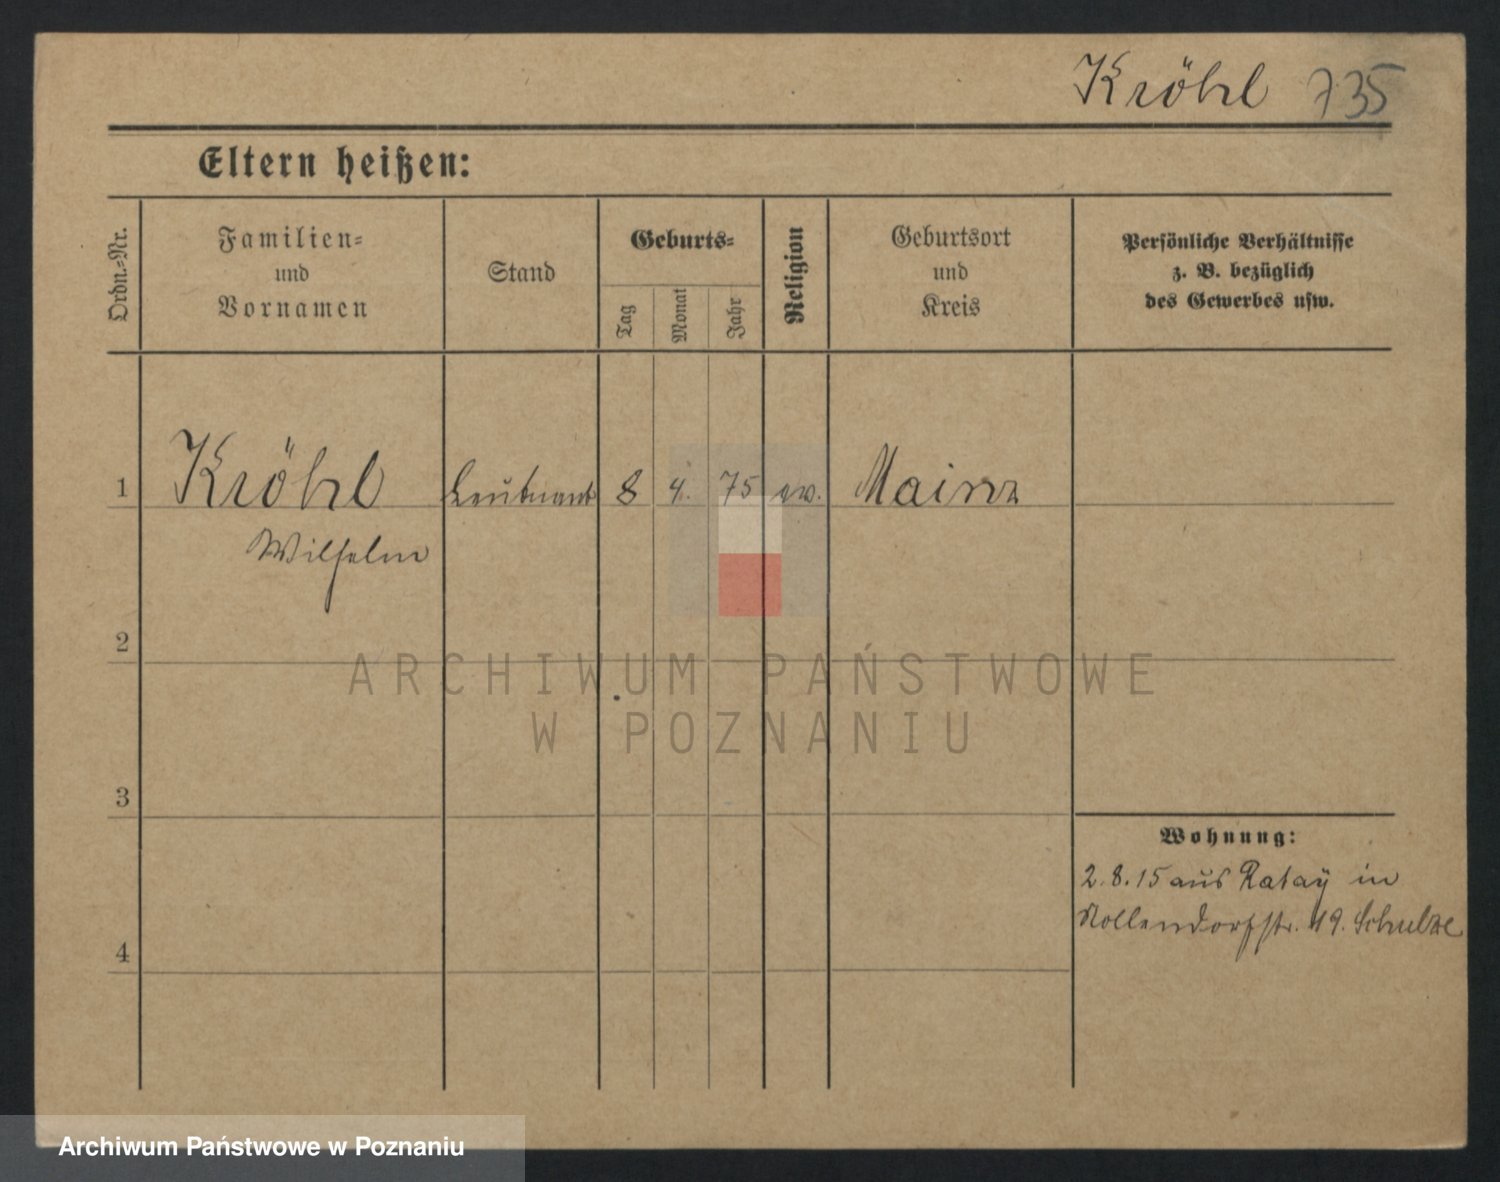 Kröhl 735
Eltern heißen:
Ordn.-Nr.
Familien-
und
Vornamen
Stand
Geburts-
Tag
Monat
Jahr
Religion
Geburtsort
und
Kreis
Persönliche Verhältnisse
z. B. bezüglich
des Gewerbes usw.
1 Kröhl Leutnant 8 4. 75 ev. Mainz
Wilhelm
2
ARCHIWUM PAŃSTWOWE
W POZNANIU
3
Wohnung:
2.8.15 aus Rataÿ in
Nollendorfstr. 49. Schulze
4
Archiwum Państwowe w Poznaniu